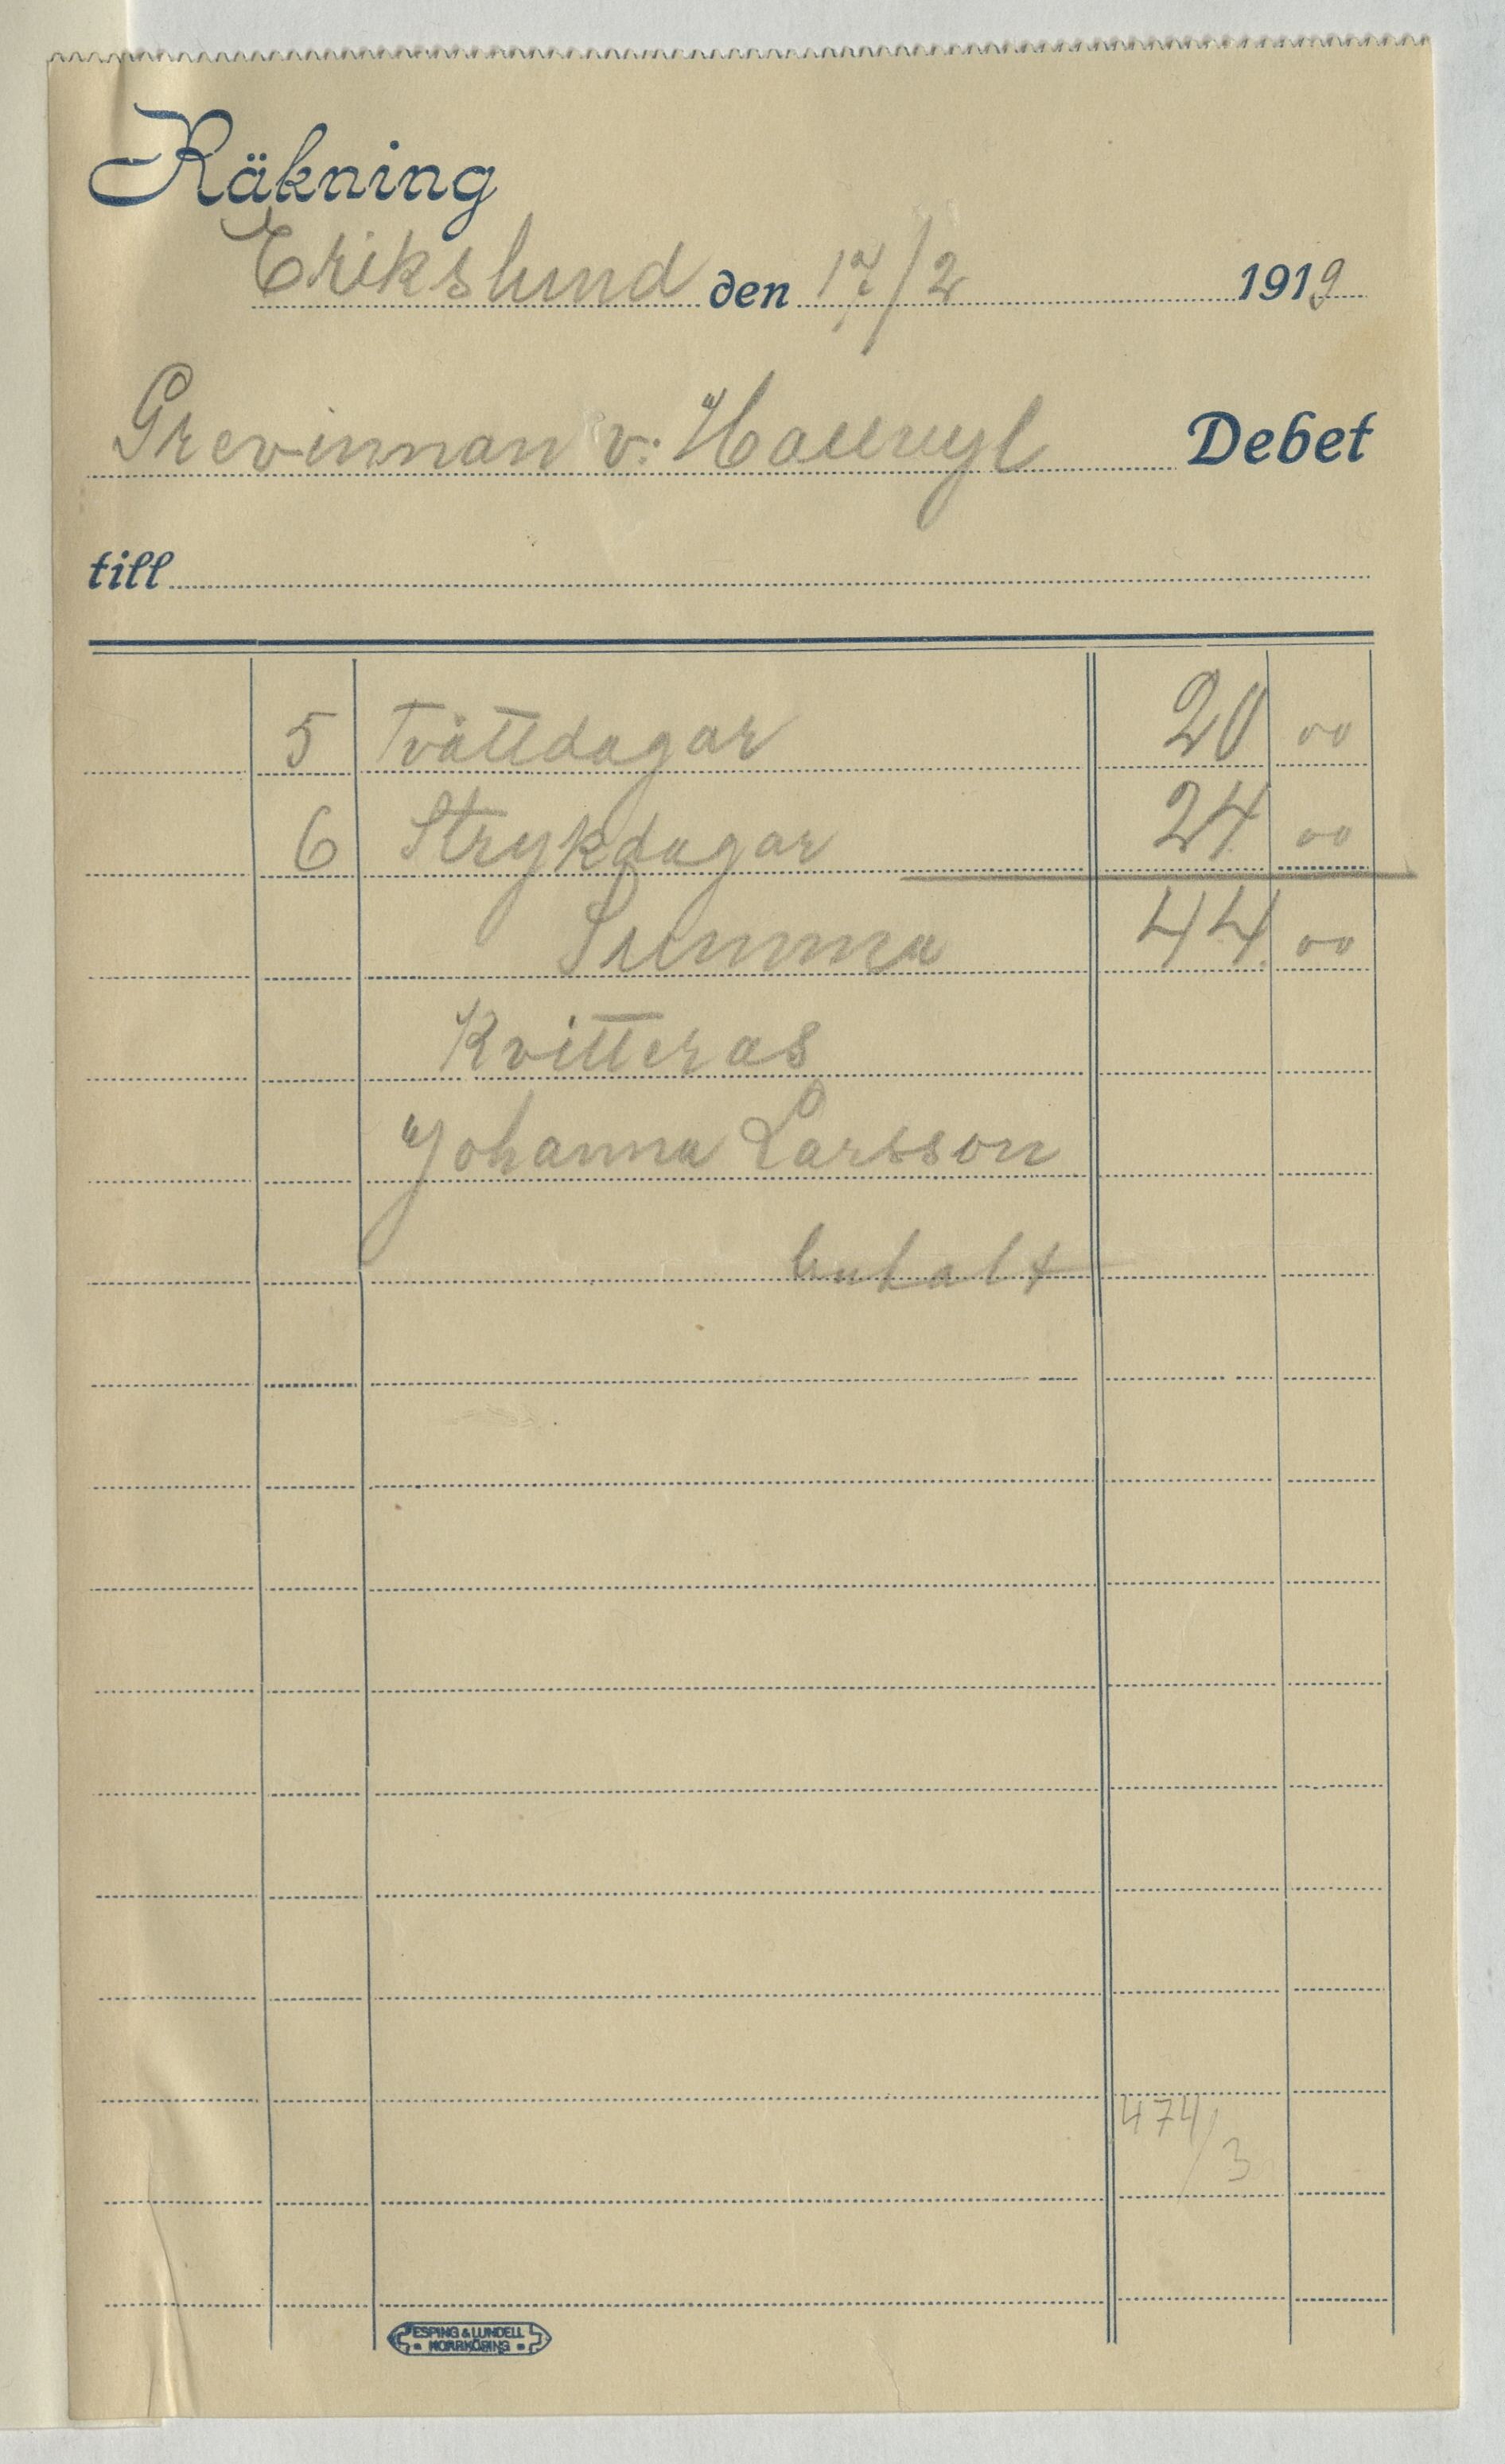 Räkning
Erikslund den 17/2 1919
Grevinnan v: Hallwyl Debet
till
5 Tvättdagar 20 00
6 Strykdagar 24 00
Summa 44 00
Kvitteras
Johanna Larsson
474/3
ESPING & LUNDELL
NORRKÖPING